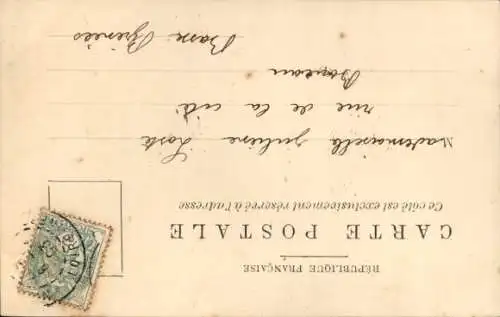 RÉPUBLIQUE FRANÇAISE
CARTE POSTALE
Ce côté est exclusivement réservé à l'adresse
Mademoiselle Juliena
rue de la cité
Basses Pyrénées